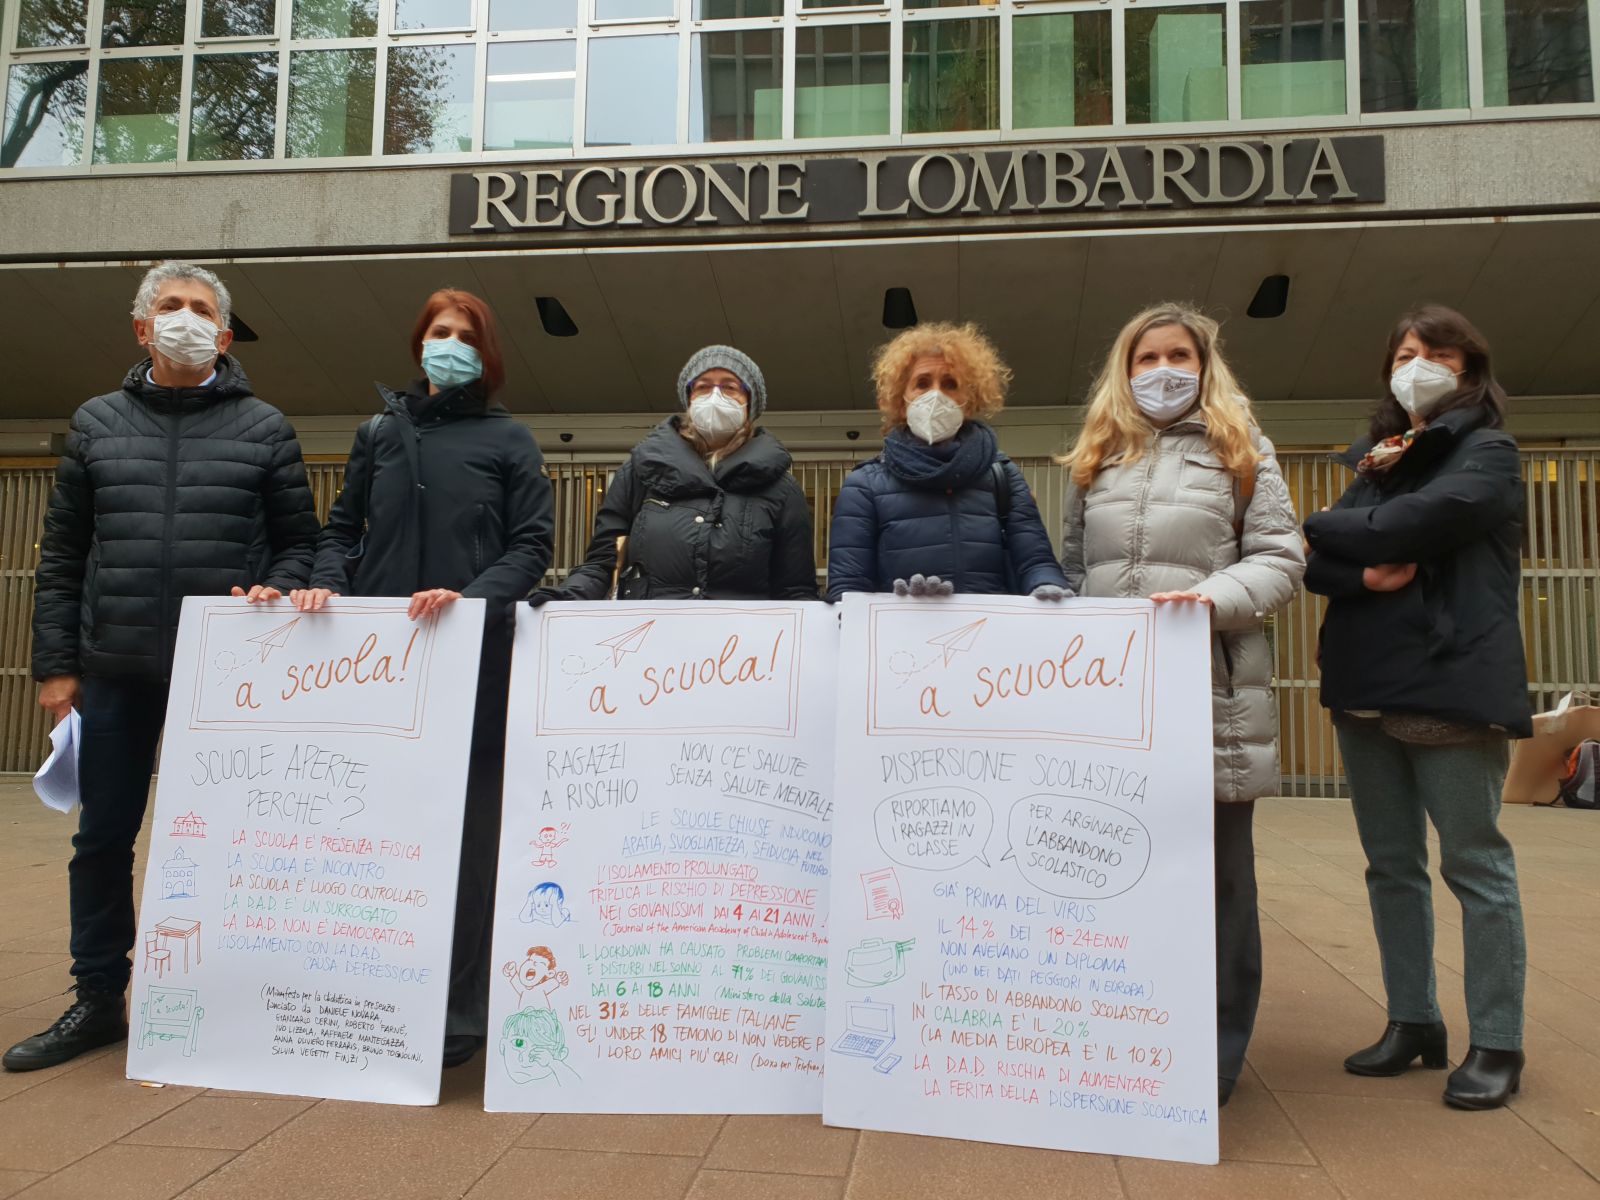 REGIONE LOMBARDIA
a scuola!
SCUOLE APERTE,
PERCHE'?
LA SCUOLA E' PRESENZA FISICA
LA SCUOLA E' INCONTRO
LA SCUOLA E' LUOGO CONTROLLATO
LA D.A.D. E' UN SURROGATO
LA D.A.D. NON E' DEMOCRATICA
L'ISOLAMENTO CON LA D.A.D
CAUSA DEPRESSIONE
(Manifesto per la didattica in presenza:
lanciato da DANIELE NOVARA,
GIANCARLO CERINI, ROBERTO FARNÉ,
IVO LIZZOLA, RAFFAELE MANTEGAZZA,
ANNA OLIVERIO FERRARIS, BRUNO TOGNOLINI,
SILVIA VEGETTI FINZI)
a scuola!
a scuola!
RAGAZZI
A RISCHIO
NON C'E' SALUTE
SENZA SALUTE MENTALE
LE SCUOLE CHIUSE INDUCONO
APATIA, SVOGLIATEZZA, SFIDUCIA NEL
FUTURO
L'ISOLAMENTO PROLUNGATO
TRIPLICA IL RISCHIO DI DEPRESSIONE
NEI GIOVANISSIMI DAI 4 AI 21 ANNI!
(Journal of the American Academy of Child & Adolescent
IL LOCKDOWN HA CAUSATO PROBLEMI
E DISTURBI NEL SONNO AL 71% DEI
DAI 6 AI 18 ANNI (Ministero della Salute
NEL 31% DELLE FAMIGLIE ITALIANE
GLI UNDER 18 TEMONO DI NON VEDERE
I LORO AMICI PIU' CARI (Doxa per
a scuola!
DISPERSIONE SCOLASTICA
RIPORTIAMO
I RAGAZZI IN
CLASSE
PER ARGINARE
L'ABBANDONO
SCOLASTICO
GIA' PRIMA DEL VIRUS
IL 14% DEI 18-24ENNI
NON AVEVANO UN DIPLOMA
(UNO DEI DATI PEGGIORI IN EUROPA)
IL TASSO DI ABBANDONO SCOLASTICO
IN CALABRIA E' IL 20%
(LA MEDIA EUROPEA E' IL 10%)
LA D.A.D. RISCHIA DI AUMENTARE
LA FERITA DELLA DISPERSIONE SCOLASTICA